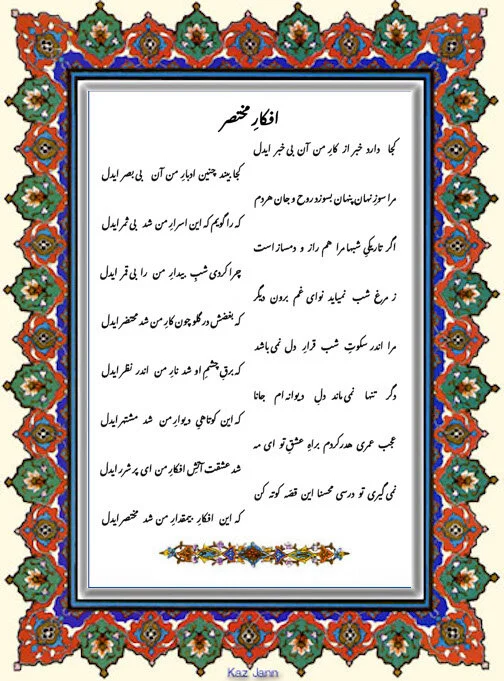 افکارِ مختصر
کجا دارد خبر از کارِ من آن بی خبر ایدل
کجا بیند چنین ادبارِ من آن بی بصر ایدل
مرا سوزِ نهان پنهان بسوزد روح و جان هردم
که را گویم که این اسرارِ من شد بی ثمر ایدل
اگر تاریکیِ شبها مرا هم راز و دمساز است
چرا کردی شبِ بیدارِ من را بی قمر ایدل
ز مرغِ شب نمیاید نوای غم برون دیگر
که بغضش در گلو چون کارِ من شد محتضر ایدل
مرا اندر سکوتِ شب قرارِ دل نمی باشد
که برقِ چشمِ او شد نارِ من اندر نظر ایدل
دگر تنها نمی ماند دلِ دیوانه ام جانا
که این کوتاهیِ دیوارِ من شد مشتهر ایدل
عجب عمری هدر کردم براهِ عشقِ تو ای مه
شد عشقت آتشِ افکارِ من ای پر شرر ایدل
نمی گیری تو درسی محسنا این قصه کوته کن
که این افکارِ بیمقدارِ من شد مختصر ایدل
Kaz Jann